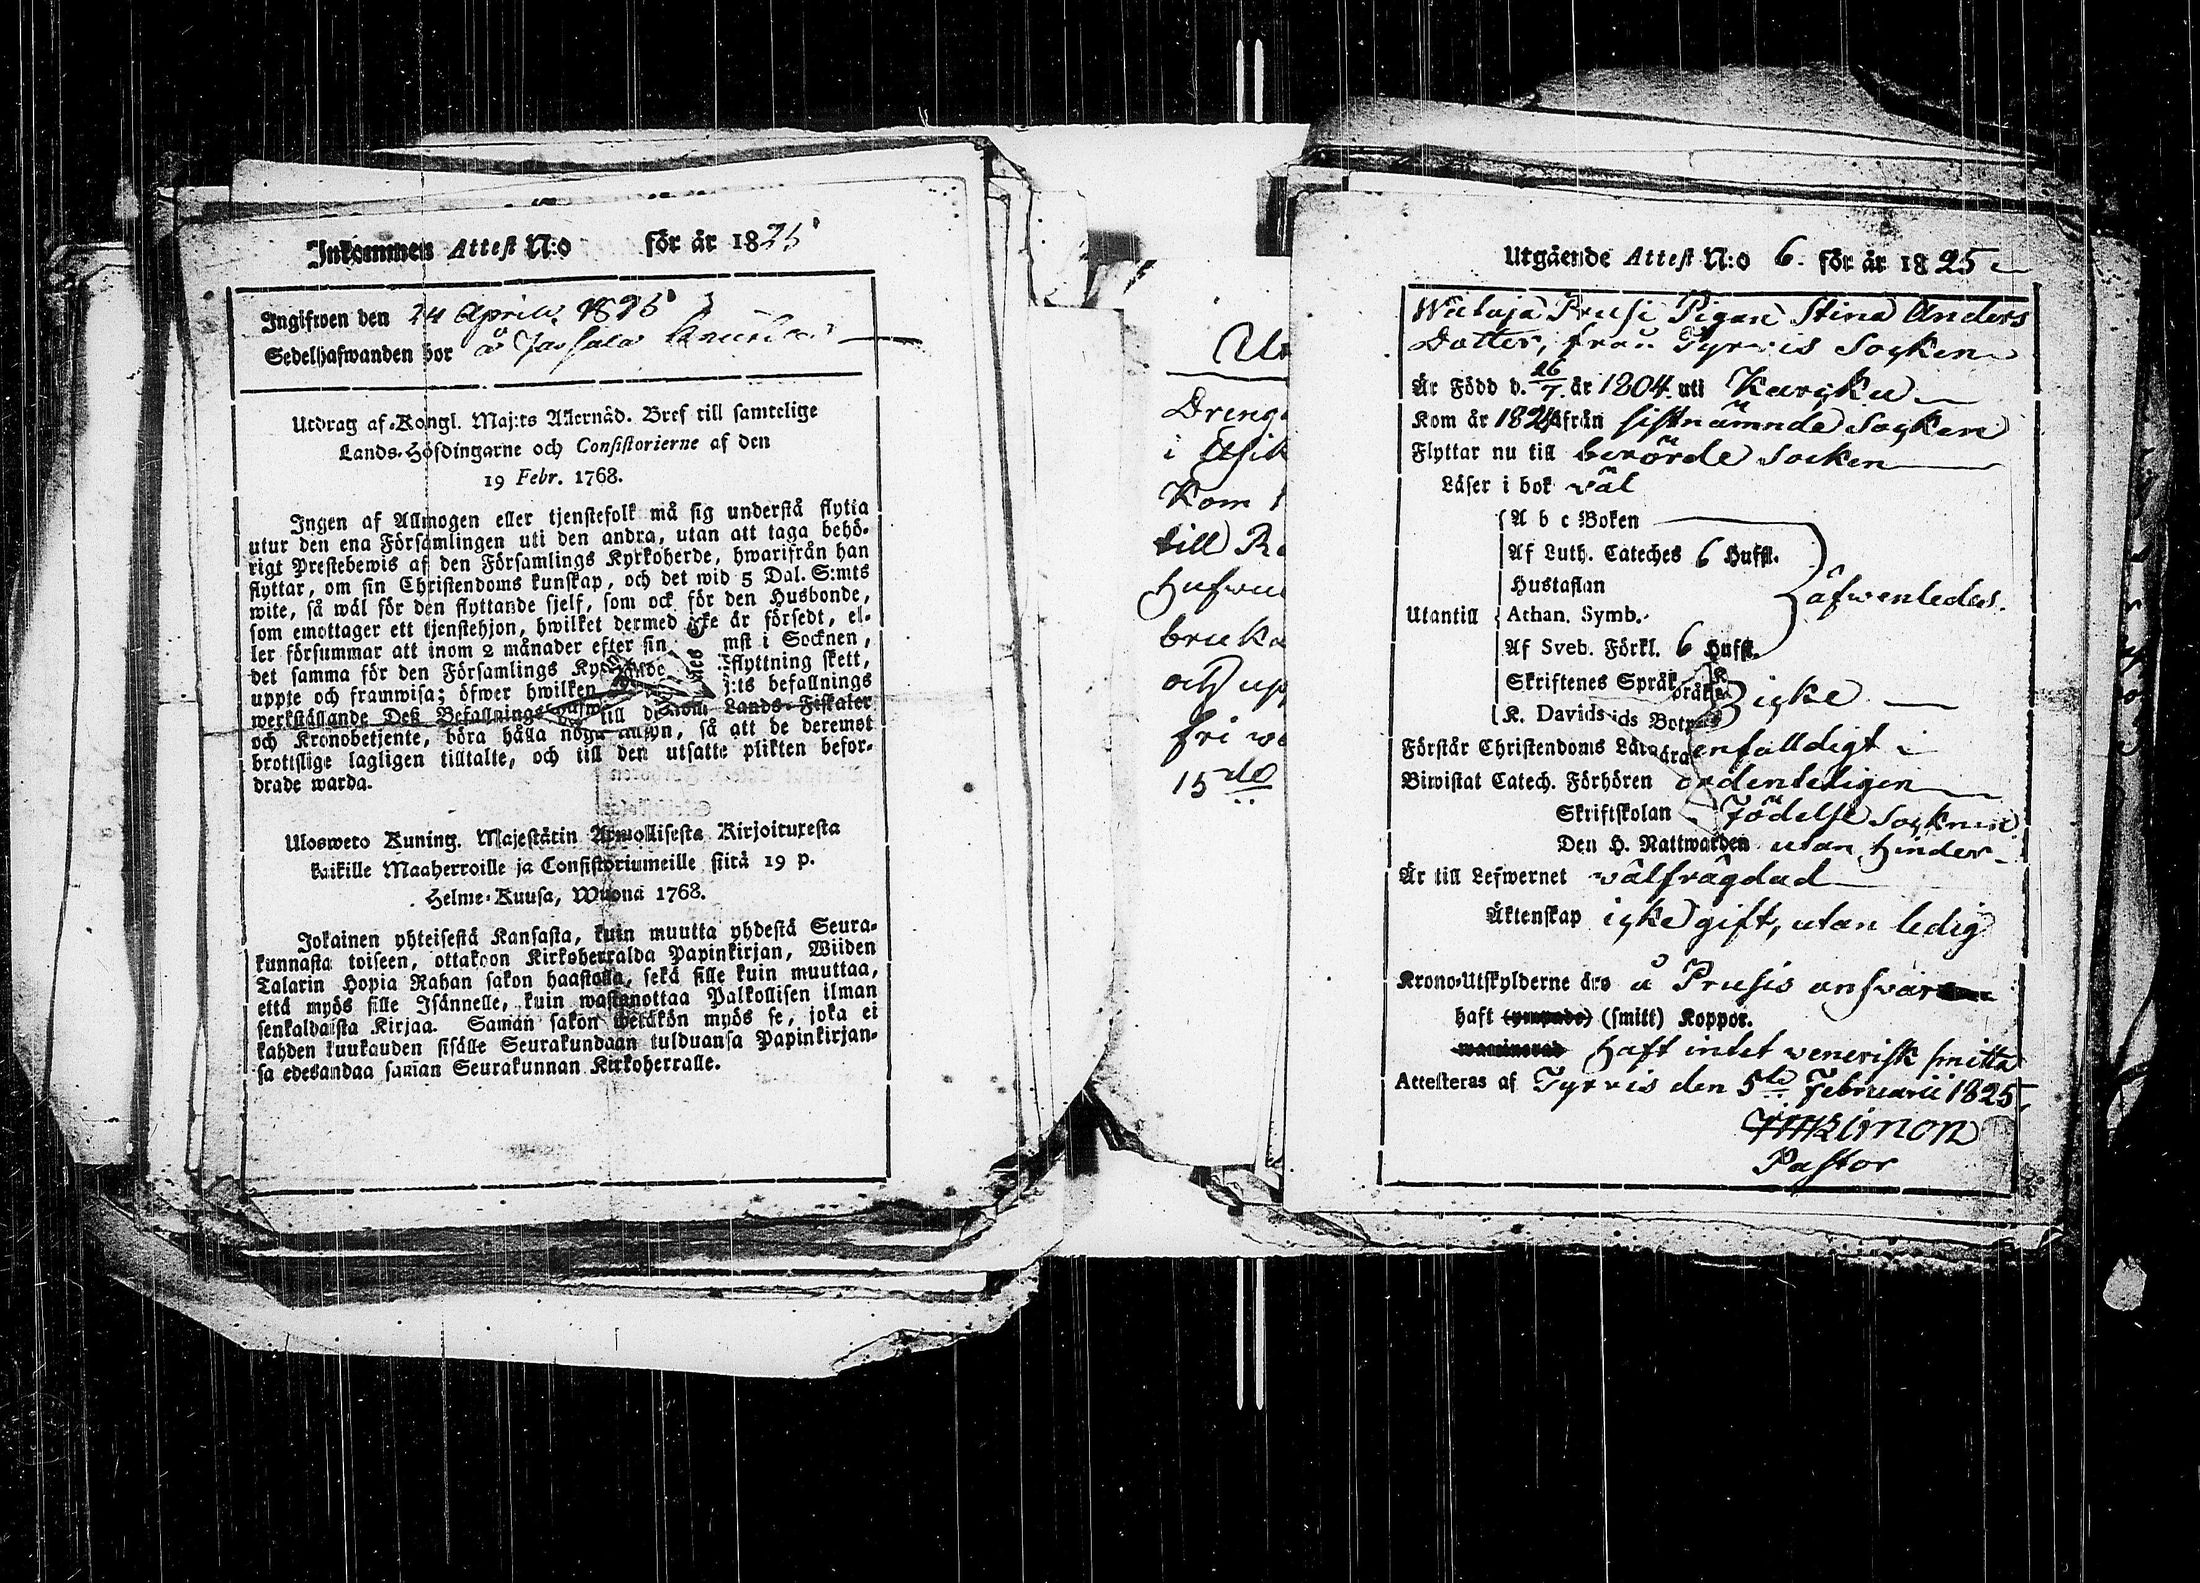 Inkommen Attest N:o för år 1825
Ingifwen den 24 Aprilis 1825
Sedelhafwanden bor å
Utdrag af Kongl. Maj:ts Allernåd. Bref till samtelige
Lands-Höfdingarne och Consistorierne af den
19 Febr. 1768.
Ingen af Allmogen eller tjenstefolk må sig understå flytta
utur den ena Församlingen uti den andra, utan att taga behö-
rigt Prestebewis af den Församlings Kyrkoherde, hwarifrån han
flyttar, om sin Christendoms kunskap, och det wid 5 Dal. S:mts
wite, så wäl för den flyttande sjelf, som ock för den Husbonde,
som emottager ett tjenstehjon, hwilket dermed icke är försedt, el-
ler försummar att inom 2 månader efter sin mst i Socknen,
det samma för den Församlings flyttning skett,
uppte och framwisa; öfwer hwilken j:ts befallnings
werkställande Deß Befallnings till Lands-Fiskaler
och Kronobetjente, böra hålla noga, så att de deremot
brottslige lagligen tilltalte, och till den utsatte plikten befor-
drade warda.
Ulosweto Kuning. Majestätin Armollisesta Kirjoituxesta
kaikille Maaherroille ja Consistoriumeille siitä 19 p.
Helme-Kuusa, Wuona 1768.
Jokainen yhteisestä Kansasta, kuin muutta yhdestä Seura-
kunnasta toiseen, ottakoon Kirkoherralda Papinkirjan, Wiiden
Talarin Hopia Rahan sakon haastolla, sekä sille kuin muuttaa,
että myös sille Isännelle, kuin wastanottaa Palkollisen ilman
senkaldaista Kirjaa. Saman sakon wetäkön myös se, joka ei
kahden kuukauden sisälle Seurakundaan tulduansa Papinkirjan-
sa edesandaa sanan Seurakunnan Kirkoherralle.
Dreng
i
Kom
till
Hufwu
bruka
och up
fri
15de
Utgående Attest N:o 6. för år 1825
Prusi Pigan Stina Anders
Dotter, från Tyrvis Socken
Är Född d. 26/7. år 1804. uti Karcku
Kom år 1824 från sistnämnde Socken
Flyttar nu till berörde Socken
Läser i bok wäl
Utantill
A b c Boken
Af Luth. Cateches 6 Hufst.
Hustaflan
Athan. Symb.
Af Sveb. Förkl. 6 Hufst.
äfwenledes.
Skriftenes Språk
K. Davids Bot
icke
Förstår Christendoms Lära enfalldigt
Biwistat Catech. Förhören ordenteligen
Skriftskolan i Födelse Socknen
Den H. Nattwarden utan hinder
Är till Lefwernet wälfrägdad
Äktenskap icke gift, utan ledig
Krono-Utskylderne äro å Prusis answar
haft (smitt) Koppor.
haft intet venerisk smitta
Attesteras af Tyrvis den 5te Februarii 1825.
Limon
Pastor